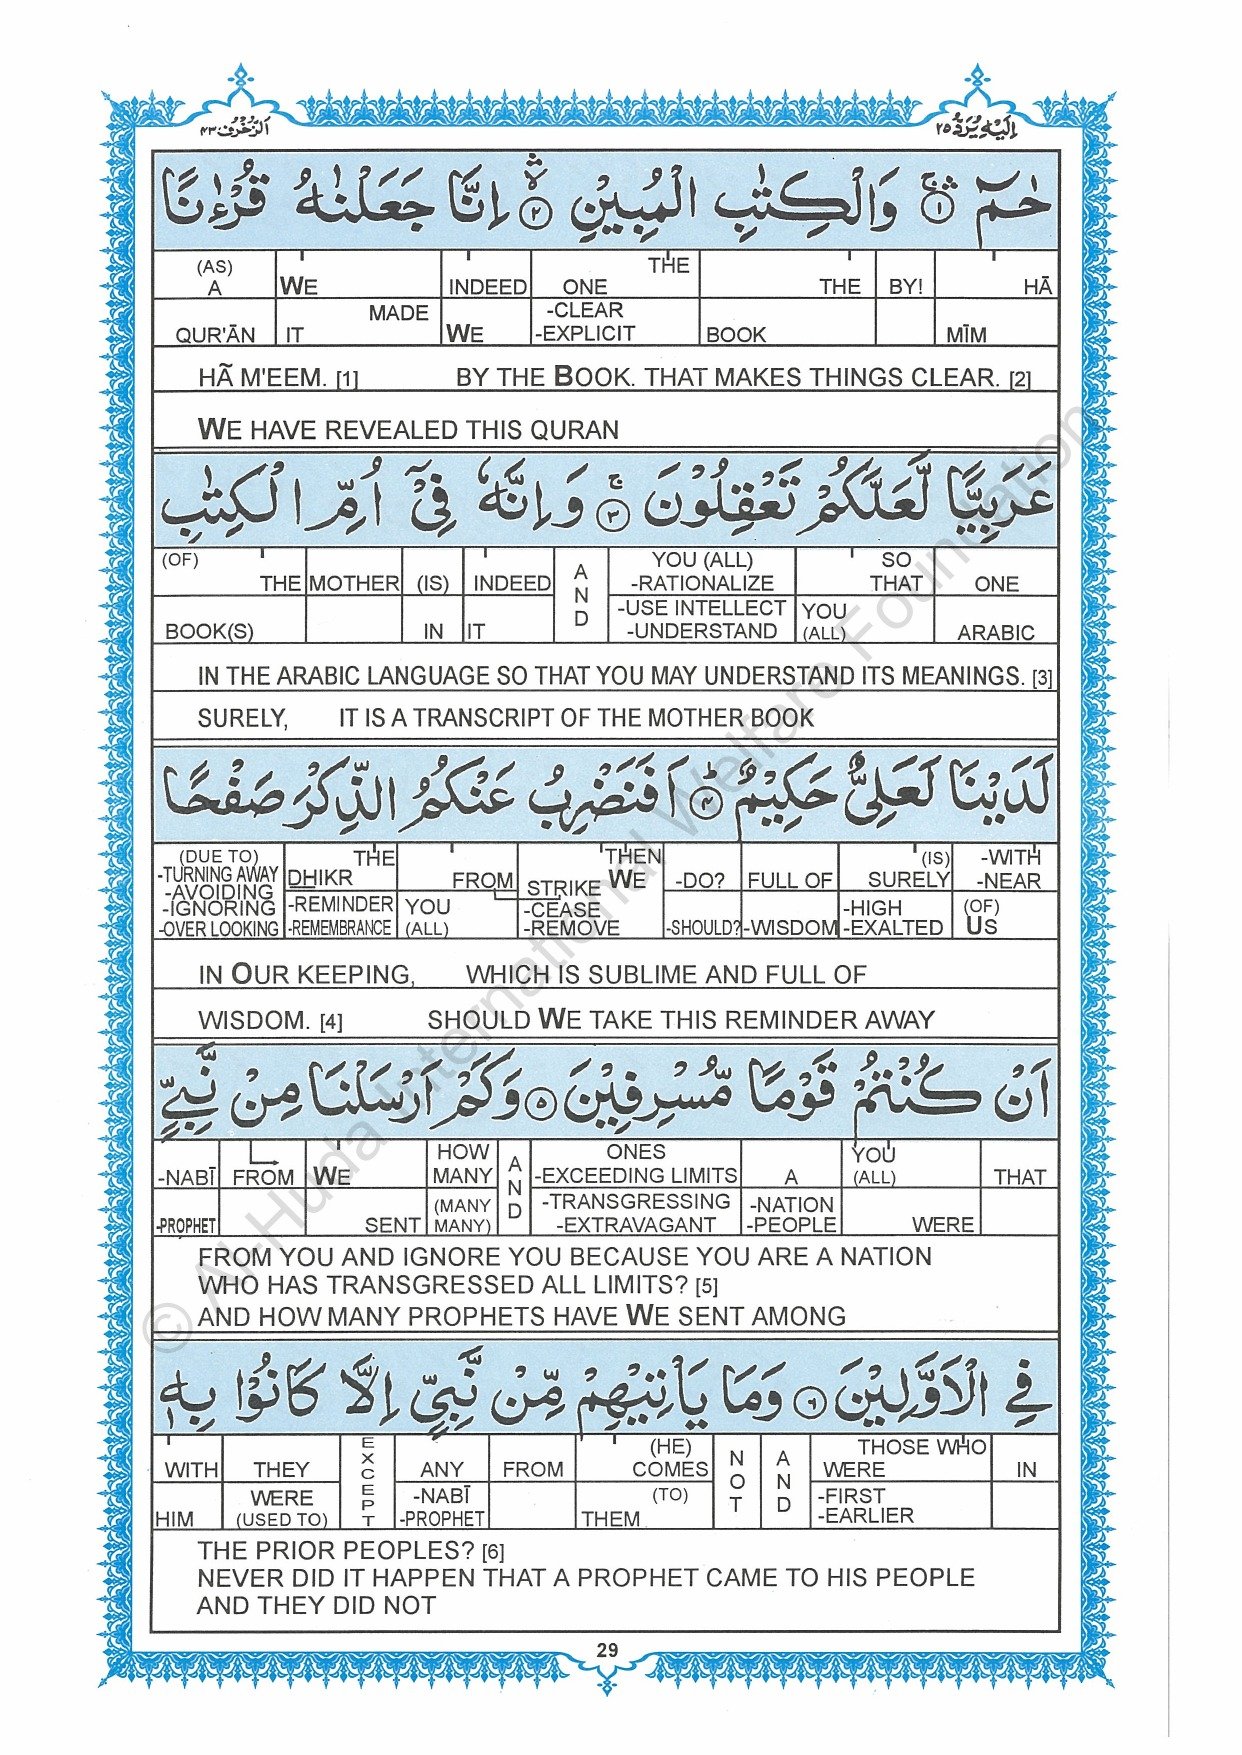 اَلزُّخْرُف ٤٣
اِلَيْهِ يُرَدُّ ٢٥
حٰمٓ ١ وَالْكِتٰبِ الْمُبِيْنِ ٢ اِنَّا جَعَلْنٰهُ قُرْءٰنًا
(AS) THE
A WE INDEED ONE THE BY! HĀ
MADE -CLEAR
QUR'ĀN IT WE -EXPLICIT BOOK MĪM
HÃ M'EEM. [1] BY THE BOOK. THAT MAKES THINGS CLEAR. [2]
WE HAVE REVEALED THIS QURAN
عَرَبِيًّا لَّعَلَّكُمْ تَعْقِلُوْنَ ٣ وَاِنَّهٗ فِيْٓ اُمِّ الْكِتٰبِ
(OF) YOU (ALL) SO
THE MOTHER (IS) INDEED AND -RATIONALIZE THAT ONE
-USE INTELLECT YOU
BOOK(S) IN IT -UNDERSTAND (ALL) ARABIC
IN THE ARABIC LANGUAGE SO THAT YOU MAY UNDERSTAND ITS MEANINGS. [3]
SURELY, IT IS A TRANSCRIPT OF THE MOTHER BOOK
لَدَيْنَا لَعَلِيٌّ حَكِيْمٌ ٤ اَفَنَضْرِبُ عَنْكُمُ الذِّكْرَ صَفْحًا
(DUE TO) THE THEN (IS) -WITH
-TURNING AWAY DHIKR FROM STRIKE WE -DO? FULL OF SURELY -NEAR
-AVOIDING
-IGNORING -REMINDER YOU -CEASE -HIGH (OF)
-OVER LOOKING -REMEMBRANCE (ALL) -REMOVE -SHOULD? -WISDOM -EXALTED US
IN OUR KEEPING, WHICH IS SUBLIME AND FULL OF
WISDOM. [4] SHOULD WE TAKE THIS REMINDER AWAY
اَنْ كُنْتُمْ قَوْمًا مُّسْرِفِيْنَ ٥ وَكَمْ اَرْسَلْنَا مِنْ نَّبِيٍّ
HOW ONES YOU
-NABĪ FROM WE MANY AND -EXCEEDING LIMITS A (ALL) THAT
(MANY -TRANSGRESSING -NATION
-PROPHET SENT MANY) -EXTRAVAGANT -PEOPLE WERE
FROM YOU AND IGNORE YOU BECAUSE YOU ARE A NATION
WHO HAS TRANSGRESSED ALL LIMITS? [5]
AND HOW MANY PROPHETS HAVE WE SENT AMONG
فِي الْاَوَّلِيْنَ ٦ وَمَا يَاْتِيْهِمْ مِّنْ نَّبِيٍّ اِلَّا كَانُوْا بِهٖ
(HE) THOSE WHO
WITH THEY EXCEPT ANY FROM COMES NOT AND WERE IN
WERE -NABĪ (TO) -FIRST
HIM (USED TO) -PROPHET THEM -EARLIER
THE PRIOR PEOPLES? [6]
NEVER DID IT HAPPEN THAT A PROPHET CAME TO HIS PEOPLE
AND THEY DID NOT
29
© Al-Huda International Welfare Foundation